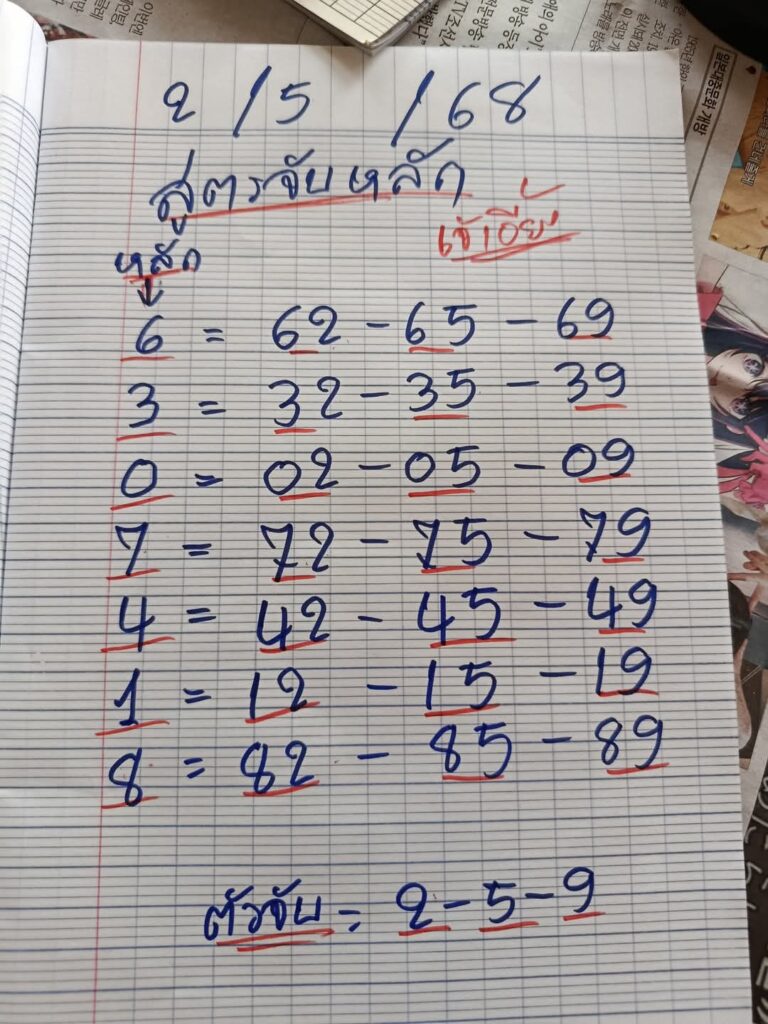 2 / 5 / 68
สูตรจับหลัก
หลัก
6 = 62 - 65 - 69
3 = 32 - 35 - 39
0 = 02 - 05 - 09
7 = 72 - 75 - 79
4 = 42 - 45 - 49
1 = 12 - 15 - 19
8 = 82 - 85 - 89
ตัวจับ = 2 - 5 - 9